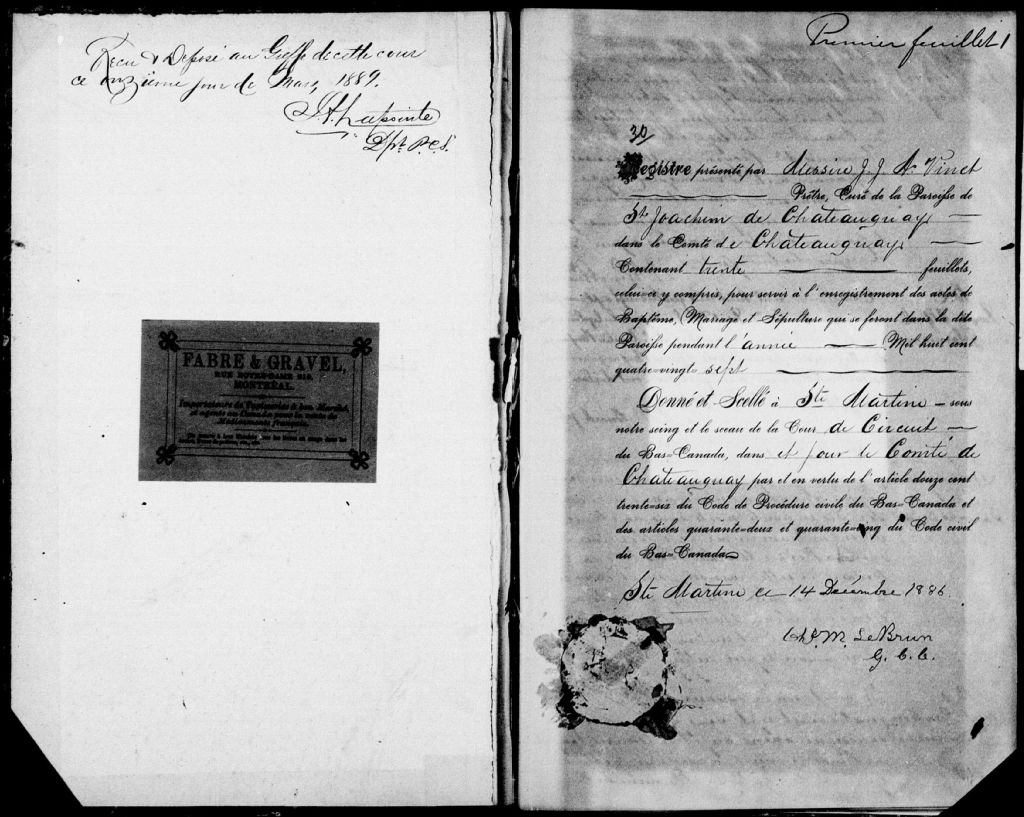 Reçu & Déposé au Greffe de cette cour
ce onzième jour de Mars, 1889.
Lapointe
Dpt. P.C.S.
FABRE & GRAVEL,
RUE NOTRE-DAME 219,
MONTRÉAL.
Premier feuillet 1
30
Registre présenté par Messire J. J. A. Vinet
Prêtre, Curé de la Paroisse de
St. Joachim de Chateauguay
dans le Comté de Chateauguay
Contenant trente feuillets,
celui-ci y compris, pour servir à l'enregistrement des actes de
Baptême, Mariage et Sépulture qui se feront dans la dite
Paroisse pendant l'année Mil huit cent
quatre-vingt- sept
Donné et Scellé à Ste Martine - sous
notre seing et le sceau de la Cour de Circuit
du Bas-Canada, dans et pour le Comté de
Chateauguay par et en vertu de l'article douze cent
trente-six du Code de Procédure civile du Bas-Canada et
des articles quarante-deux et quarante-cinq du Code civil
du Bas-Canada
Ste Martine ce 14 Décembre 1886.
M. LeBrun
G. C. C.